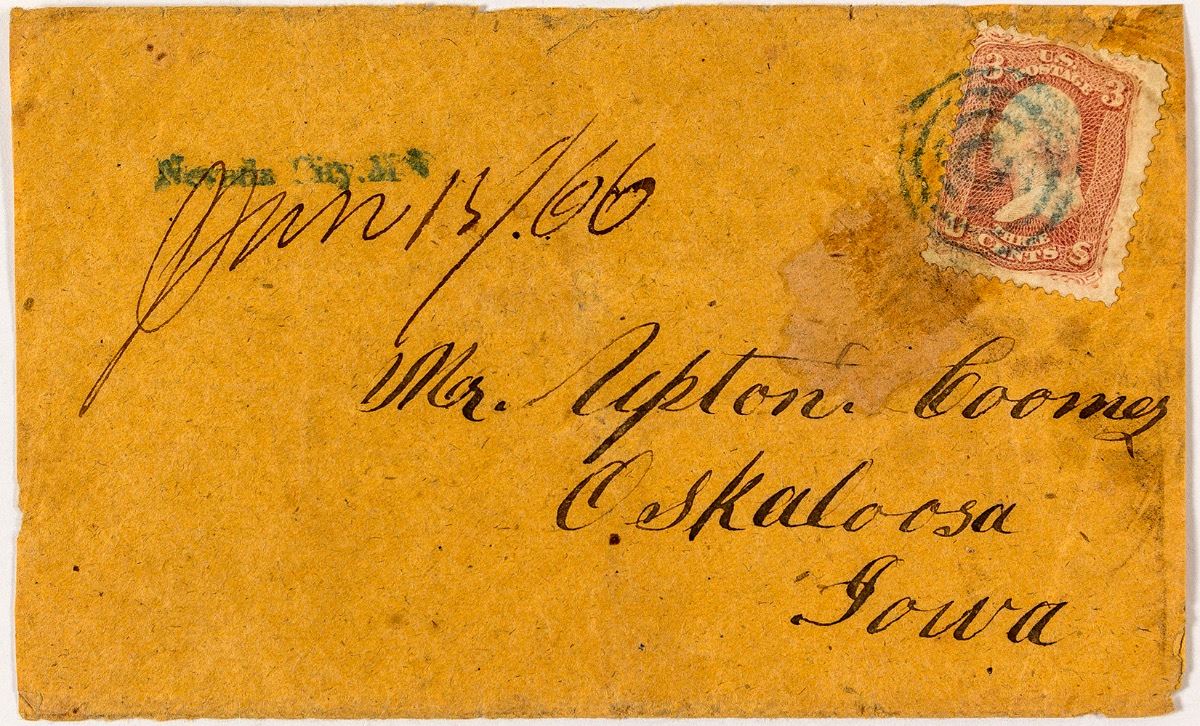 Nevada City. M
Jun 13/66
Mr. Upton Coomes
Oskaloosa
Iowa
3 U.S. POSTAGE 3
THREE
U CENTS S